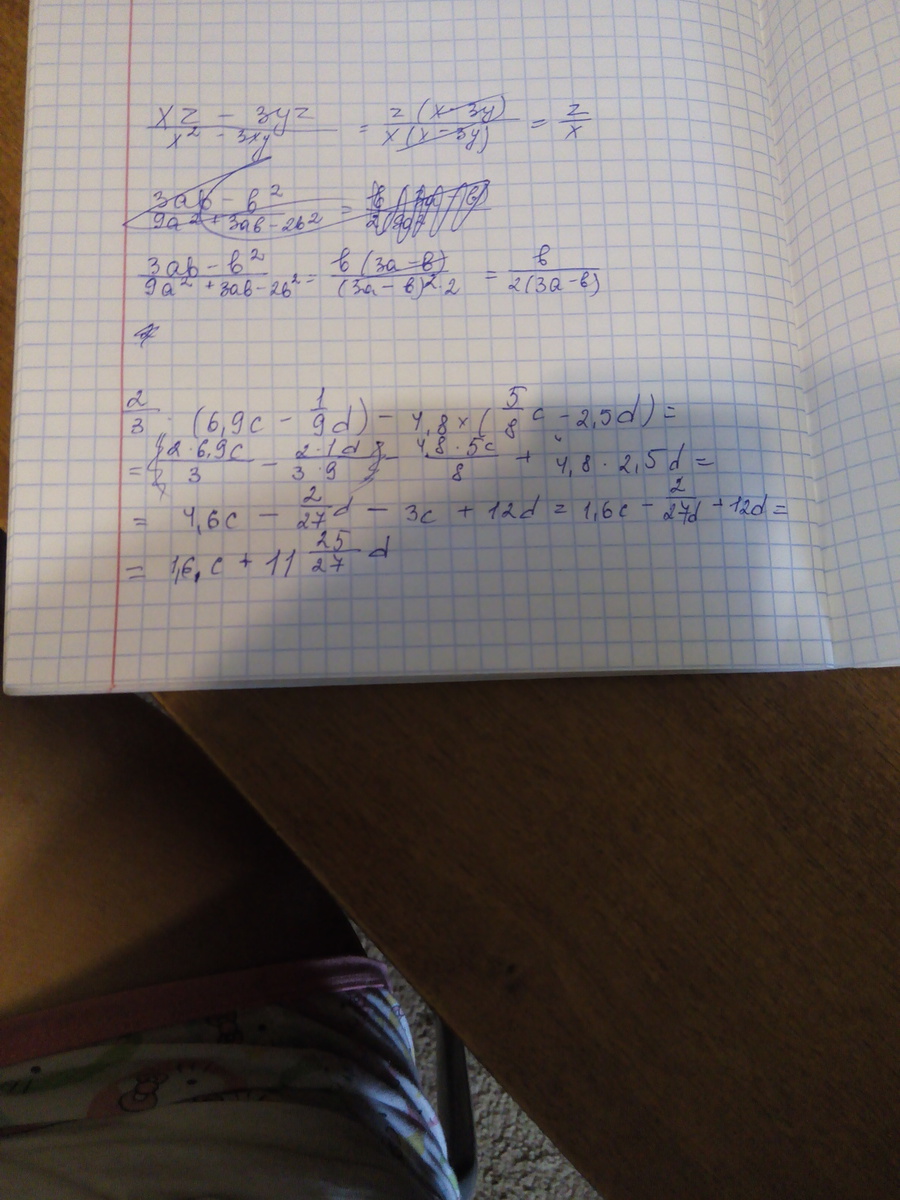 xz - 3yz / x² - 3xy = z(x-3y) / x(x-3y) = z/x
3ab - b² / 9a² + 3ab - 2b² =
3ab - b² / 9a² + 3ab - 2b² = b(3a-b) / (3a-b)²·2 = b / 2(3a-b)
2/3 · (6,9c - 1/9 d) - 4,8 × (5/8 c - 2,5d) =
= 2·6,9c / 3 - 2·1d / 3·9 - 4,8·5c / 8 + 4,8·2,5d =
= 4,6c - 2/27 d - 3c + 12d = 1,6c - 2/27d + 12d =
= 1,6,c + 11 25/27 d